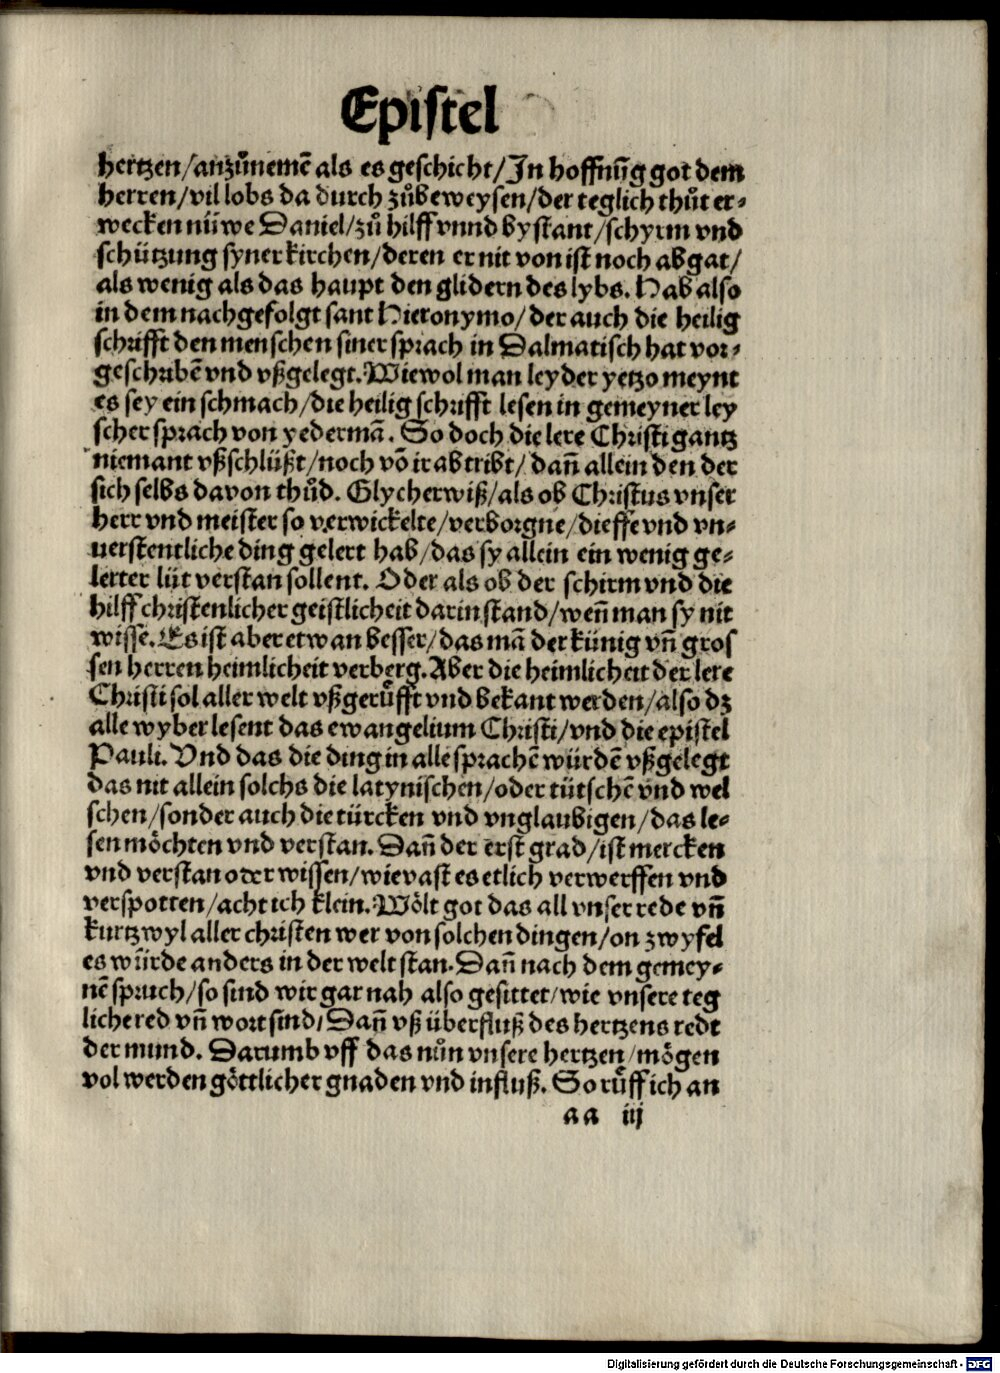 Epistel
hertzen/anzůnemē als es geschicht/In hoffnūg got dem
herren/vil lobs da durch zůbeweysen/der teglich thůt er⸗
wecken nüwe Daniel/zů hilff vnnd bystant/schyrm vnd
schützung syner kirchen/deren er nit von ist noch abgat/
als wenig als das haupt den glidern des lybs. Hab also
in dem nachgefolgt sant Hieronymo/der auch die heilig
schrifft den menschen siner sprach in Dalmatisch hat vor⸗
geschribē vnd vßgelegt. Wiewol man leyder yetzo meynt
es sey ein schmach/die heilig schrifft lesen in gemeyner ley
scher sprach von yedermā. So doch die lere Christi gantz
niemant vßschlüßt/noch vō ir abtribt/dañ allein den der
sich selbs davon thůd. Glycherwiß/als ob Christus vnser
herr vnd meister so verwickelte/verborgne/dieffe vnd vn⸗
uerstentliche ding gelert hab/das sy allein ein wenig ge⸗
lerter lüt verstan sollent. Oder als ob der schirm vnd die
hilff christenlicher geistlicheit darin stand/weñ man sy nit
wisse. Es ist aber etwan besser/das mā der künig vñ gros
sen herren heimlicheit verberg. Aber die heimlicheit der lere
Christi sol aller welt vßgerůfft vnd bekant werden/also dz
alle wyber lesent das ewangelium Christi/vnd die epistel
Pauli. Vnd das die ding in alle sprachē würdē vßgelegt
das nit allein solchs die latynischen/oder tütschē vnd wel
schen/sonder auch die türcken vnd vnglaubigen/das le⸗
sen möchten vnd verstan. Dañ der erst grad/ist mercken
vnd verstan oder wissen/wie vast es etlich verwerffen vnd
verspotten/acht ich klein. Wölt got das all vnser rede vñ
kurtzwyl aller christen wer von solchen dingen/on zwyfel
es würde anders in der welt stan. Dañ nach dem gemey⸗
nē spruch/so sind wir gar nah also gesittet/wie vnsere teg
liche red vñ wort sind/Dañ vß überfluß des hertzens redt
der mund. Darumb vff das nůn vnsere hertzen/mögen
vol werden göttlicher gnaden vnd influß. So růff ich an
aa iij
Digitalisierung gefördert durch die Deutsche Forschungsgemeinschaft - DFG